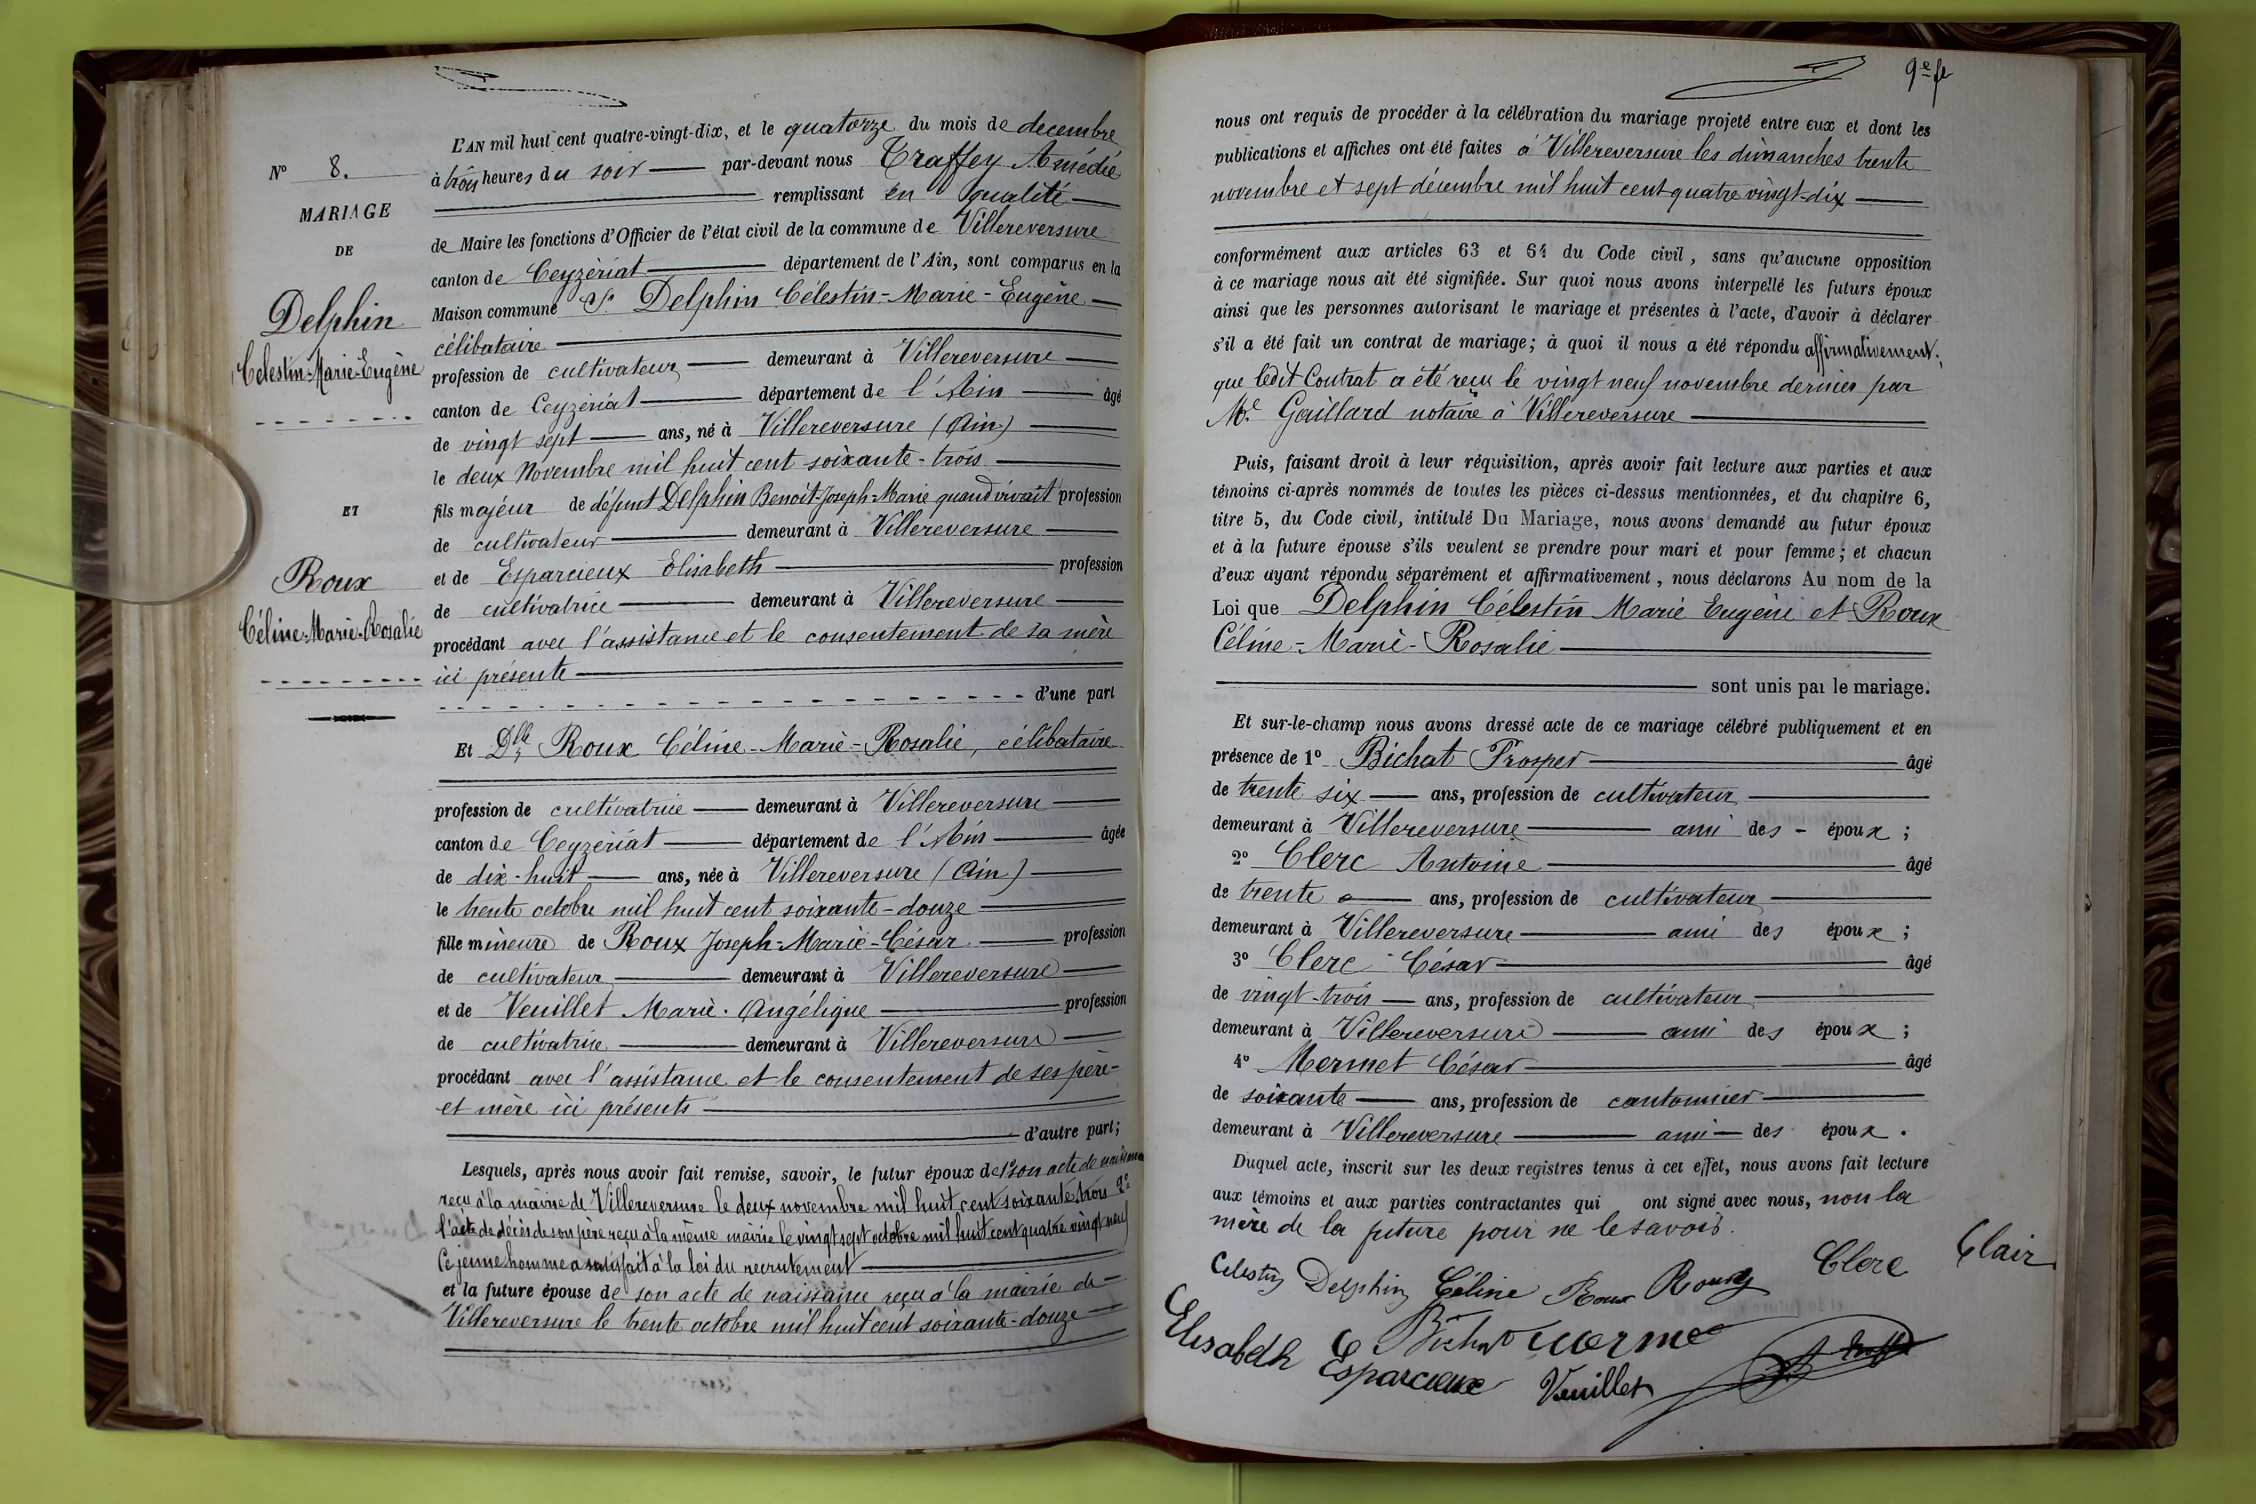 L'AN mil huit cent quatre-vingt-dix, et le quatorze du mois de decembre
à trois heures du soir par-devant nous Traffey Amédié
remplissant en qualité
de Maire les fonctions d'Officier de l'état civil de la commune de Villereversure
canton de Ceyzériat département de l'Ain, sont comparus en la
Maison commune Sr. Delphin Célestin-Marie-Eugène
célibataire
profession de cultivateur demeurant à Villereversure
canton de Ceyzériat département de l'Ain âgé
de vingt sept ans, né à Villereversure (Ain)
le deux Novembre mil huit cent soixante-trois
fils majeur de défunt Delphin Benoit-Joseph-Marie quand vivait profession
de cultivateur demeurant à Villereversure
et de Esparcieux Elisabeth profession
de cultivatrice demeurant à Villereversure
procédant avec l'assistance et le consentement de sa mère
ici présente
d'une part
Et Dlle Roux Céline-Marie-Rosalie, célibataire
profession de cultivatrice demeurant à Villereversure
canton de Ceyzériat département de l'Ain âgée
de dix-huit ans, née à Villereversure (Ain)
le trente octobre mil huit cent soixante-douze
fille mineure de Roux Joseph-Marie-César profession
de cultivateur demeurant à Villereversure
et de Veuillet Marie-Angélique profession
de cultivatrice demeurant à Villereversure
procédant avec l'assistance et le consentement de ses père-
et mère ici présents
d'autre part;
Lesquels, après nous avoir fait remise, savoir, le futur époux de 1° son acte de naissance
reçu à la mairie de Villereversure le deux novembre mil huit cent soixante trois 2°
l'acte de décès de son père reçu à la même mairie le vingt sept octobre mil huit cent quatre vingt neuf
Ce jeune homme a satisfait à la loi du recrutement
et la future épouse de son acte de naissance reçu à la mairie de
Villereversure le trente octobre mil huit cent soixante-douze
No 8.
MARIAGE
DE
Delphin
Célestin-Marie-Eugène
ET
Roux
Céline-Marie-Rosalie
9e f
nous ont requis de procéder à la célébration du mariage projeté entre eux et dont les
publications et affiches ont été faites à Villereversure les dimanches trente
novembre et sept décembre mil huit cent quatre vingt-dix
conformément aux articles 63 et 64 du Code civil, sans qu'aucune opposition
à ce mariage nous ait été signifiée. Sur quoi nous avons interpellé les futurs époux
ainsi que les personnes autorisant le mariage et présentes à l'acte, d'avoir à déclarer
s'il a été fait un contrat de mariage; à quoi il nous a été répondu affirmativement;
que ledit Contrat a été reçu le vingt neuf novembre dernier par
Me Gaillard notaire à Villereversure
Puis, faisant droit à leur réquisition, après avoir fait lecture aux parties et aux
témoins ci-après nommés de toutes les pièces ci-dessus mentionnées, et du chapitre 6,
titre 5, du Code civil, intitulé Du Mariage, nous avons demandé au futur époux
et à la future épouse s'ils veulent se prendre pour mari et pour femme; et chacun
d'eux ayant répondu séparément et affirmativement, nous déclarons Au nom de la
Loi que Delphin Célestin Marie Eugène et Roux
Céline-Marie-Rosalie
sont unis par le mariage.
Et sur-le-champ nous avons dressé acte de ce mariage célébré publiquement et en
présence de 1° Bichat Prosper âgé
de trente six ans, profession de cultivateur
demeurant à Villereversure ami des époux;
2° Clerc Antoine âgé
de trente ans, profession de cultivateur
demeurant à Villereversure ami des époux;
3° Clerc César âgé
de vingt-trois ans, profession de cultivateur
demeurant à Villereversure ami des époux;
4° Mermet César âgé
de soixante ans, profession de cantonnier
demeurant à Villereversure ami des époux.
Duquel acte, inscrit sur les deux registres tenus à cet effet, nous avons fait lecture
aux témoins et aux parties contractantes qui ont signé avec nous, non la
mère de la future pour ne le savoir.
Celestin Delphin Céline Roux Roux Clerc Clair
Elisabeth Esparcieux Bichat
Veuillet